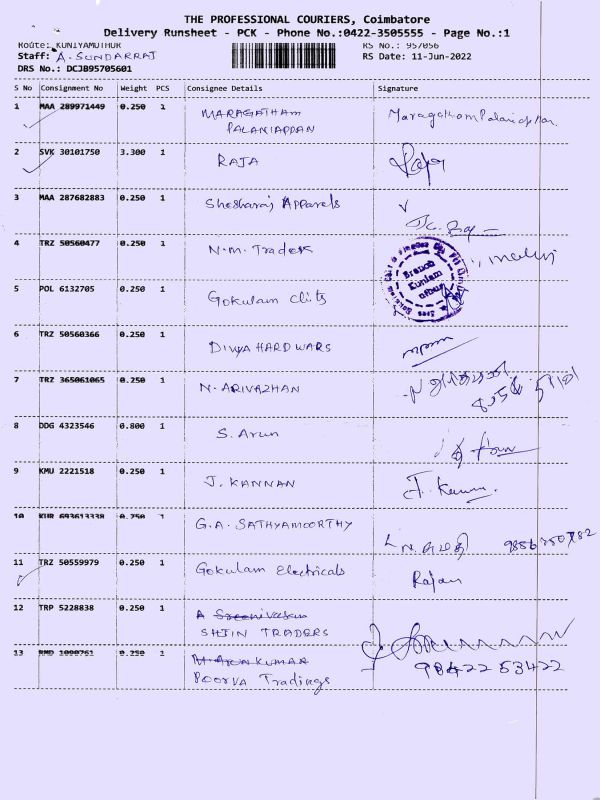 THE PROFESSIONAL COURIERS, Coimbatore
Delivery Runsheet - PCK - Phone No.:0422-3505555 - Page No.:1
Route: KUNIYAMUTHUR RS No.: 957056
Staff: A. SUNDARRAJ RS Date: 11-Jun-2022
DRS No.: DCJB95705601
S No Consignment No Weight PCS Consignee Details Signature
1 MAA 289971449 0.250 1 MARAGATHAM Maragatham Palaniappan
PALANIAPPAN
2 SVK 30101750 3.300 1 RAJA Raja
3 MAA 287682883 0.250 1 Shesharaj Apparels
4 TRZ 50560477 0.250 1 N.M. Traders
Branch
5 POL 6132705 0.250 1 Gokulam clits
6 TRZ 50560366 0.250 1 DIVYA HARDWARS
7 TRZ 365061065 0.250 1 N. ARIVAZHAN
8 DDG 4323546 0.800 1 S. Arun
9 KMU 2221518 0.250 1 J. KANNAN
10 KUR 693613338 0.250 1 G.A. SATHYAMOORTHY
11 TRZ 50559979 0.250 1 Gokulam Electricals Rajan
12 TRP 5228838 0.250 1 A Sreenivasan
SHIN TRADERS
13 RMD 1090761 0.250 1 M. ARUN KUMAR 98422 53422
POORVA Tradings